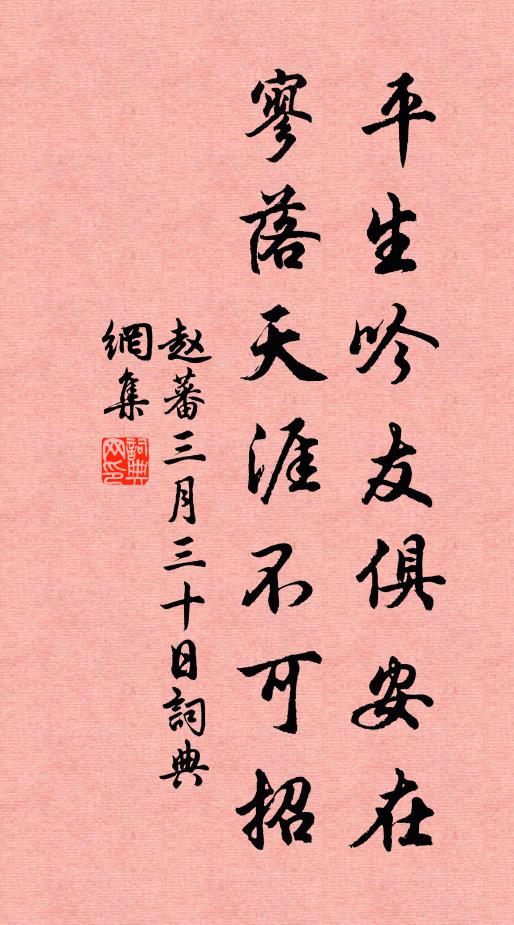 平生吟友俱安在
寥落天涯不可招
赵蕃三月三十日詞典
網集
詞典
网印